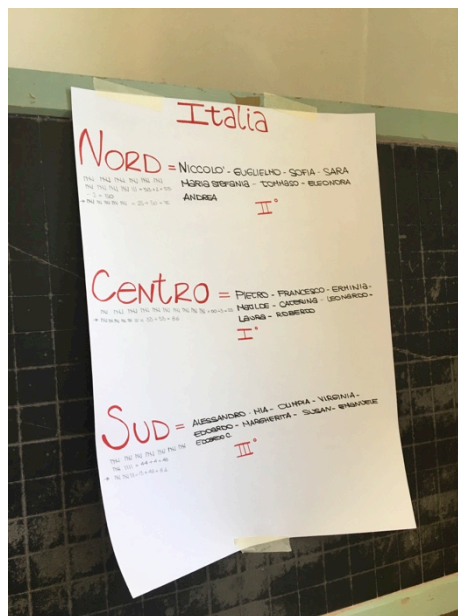 Italia
NORD = NICCOLO' - GUGLIELMO - SOFIA - SARA
MARIA STEFANIA - TOMMASO - ELEONORA
ANDREA
II°
CENTRO = PIETRO - FRANCESCO - ERMINIA -
MATILDE - CATERINA - LEONARDO -
LAURA - ROBERTO
I°
SUD = ALESSANDRO - MIA - OLIMPIA - VIRGINIA -
EDOARDO - MARGHERITA - SUSAN - EMANUELE
EDOARDO C.
III°